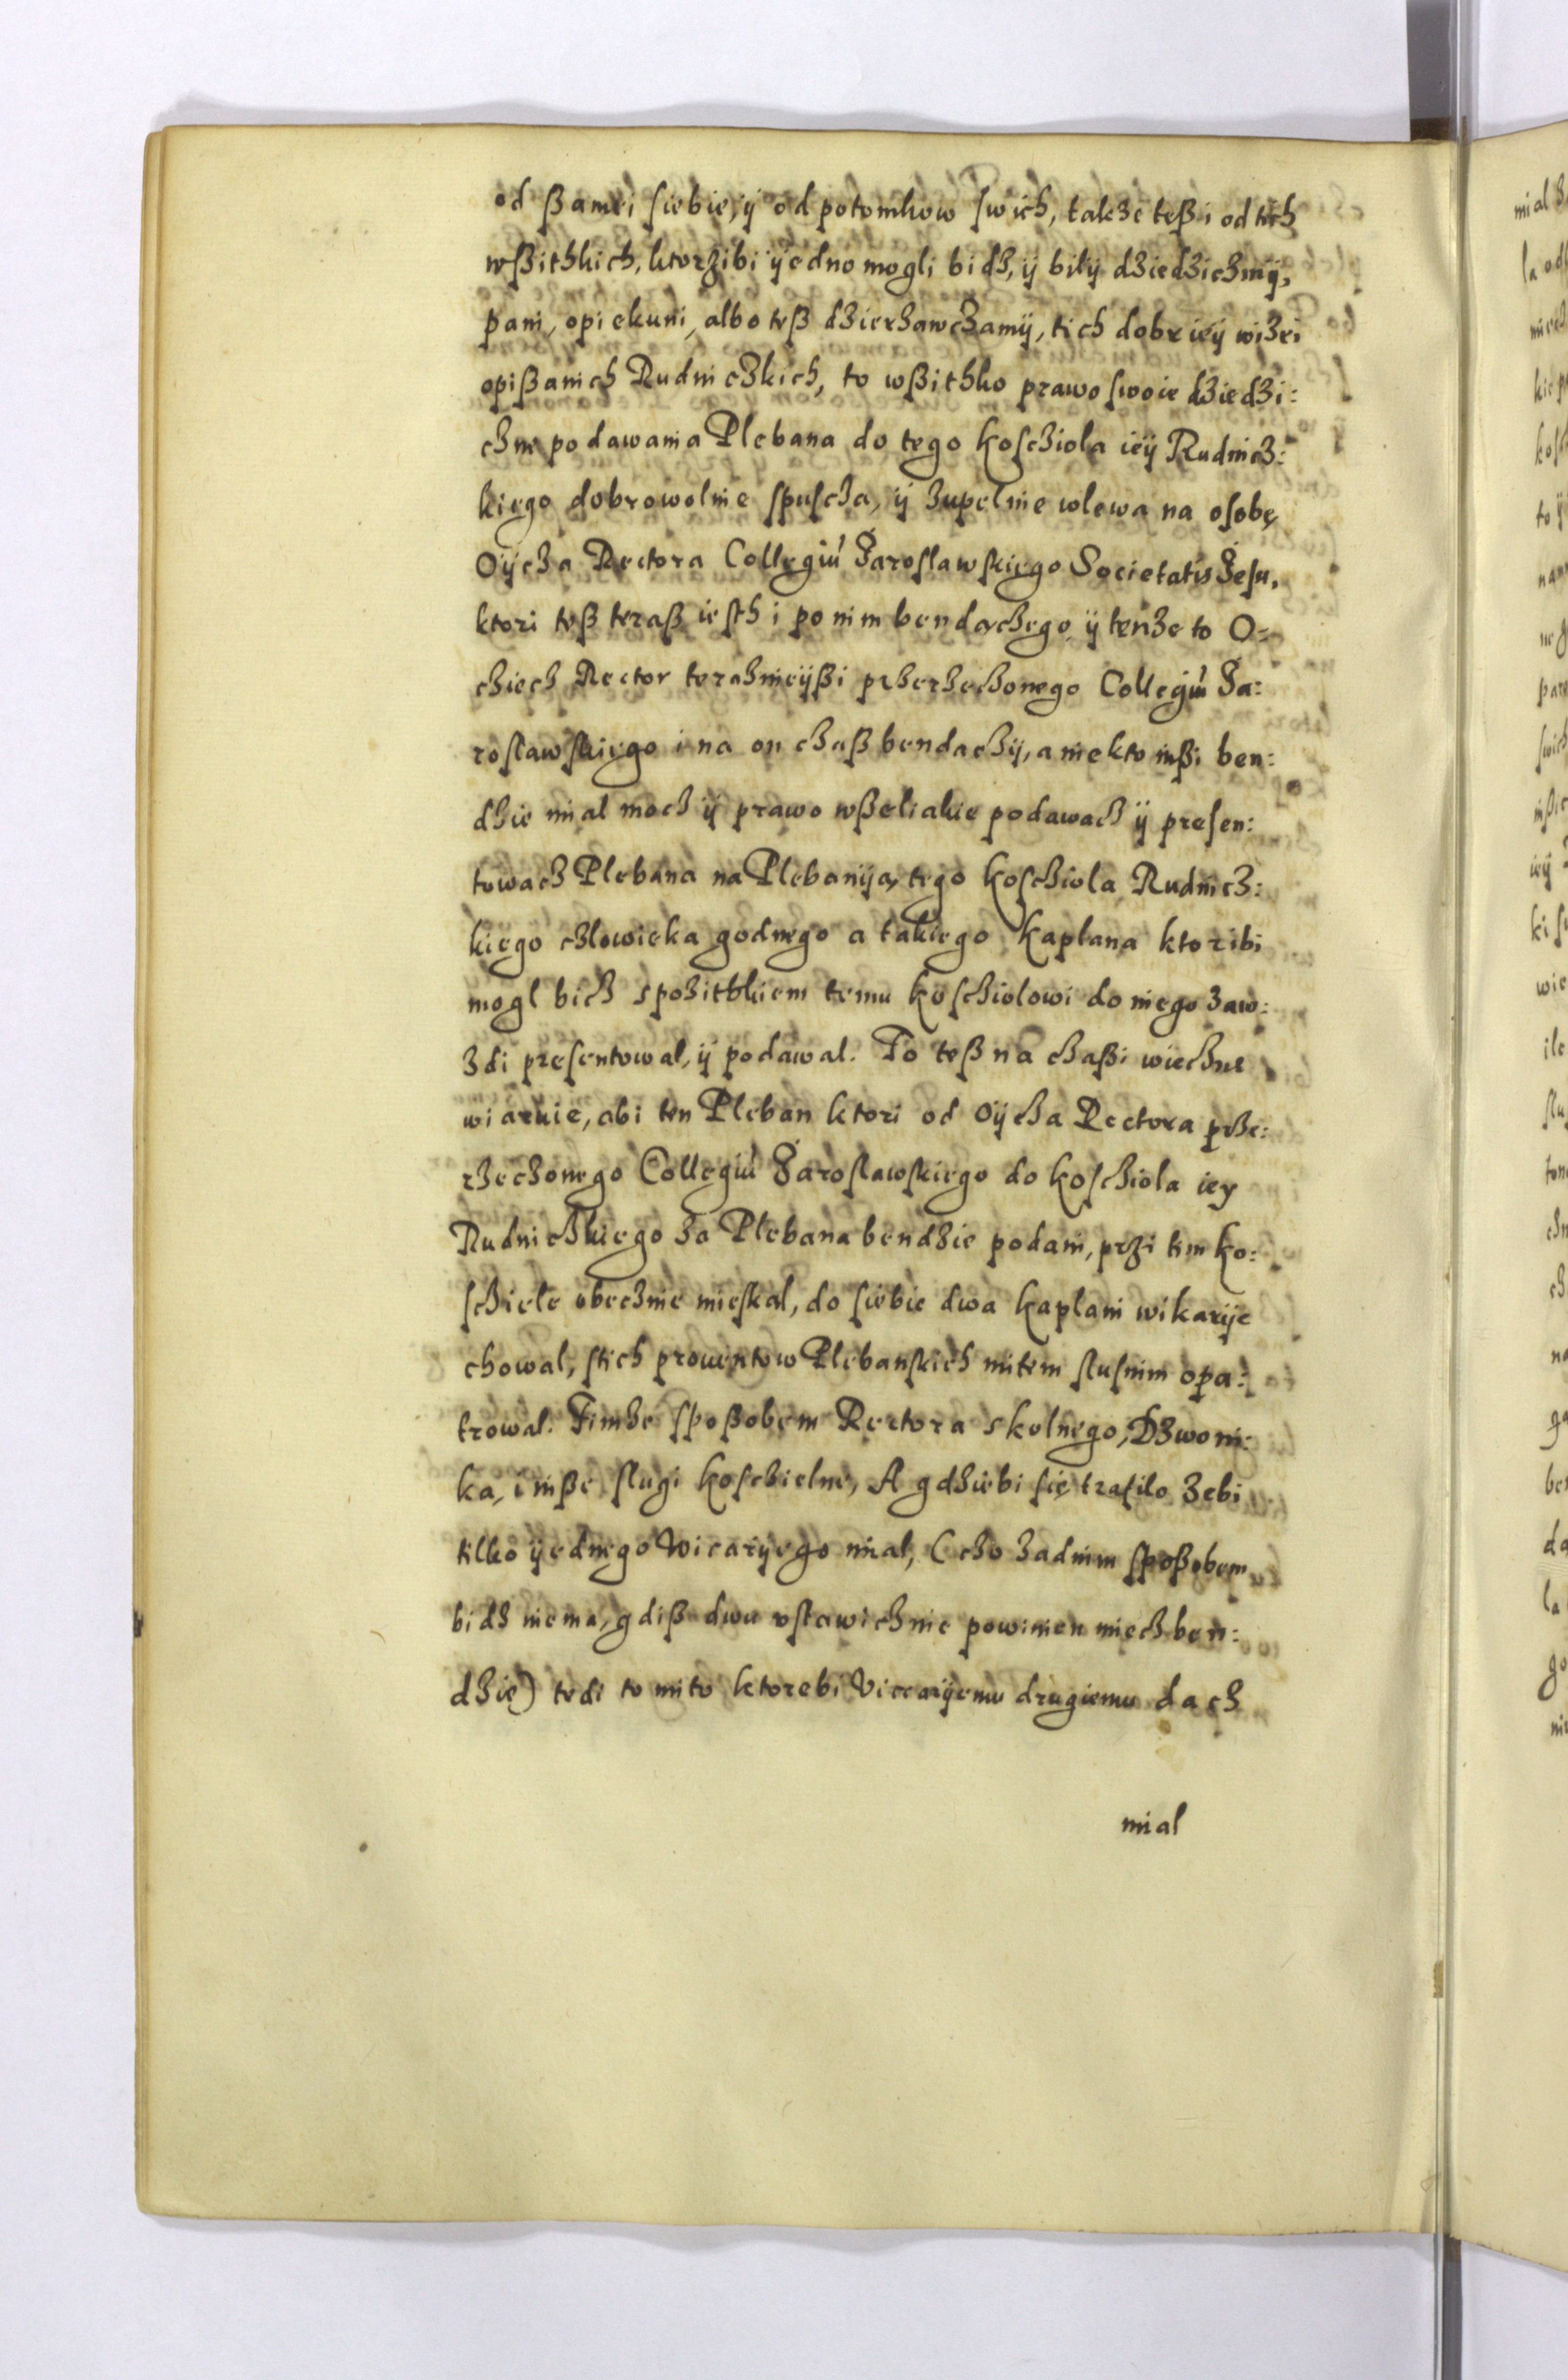 od ßamei siebie, ÿ od potomkow swich, takze teß i od tich
wßithkich, ktorzibi ÿedno mogli bidz, ÿ bilÿ dziedzicżmÿ,
pani, opiekuni, albo teß dzierzawczamÿ, tich dobr ieÿ wizei
opißanich Rudniczkich, to wßithko prawo swoie dziedzi:
czne podawania Plebana do tego kosciola ieÿ Rudnicz:
kiego dobrowolnie spuscza, ÿ zupelnie wlewa na osobę
Oÿcza Rectora Collegiú Jaroslawskiego Societatis Jesu,
ktori teß teraß iesth i po nim bendaczego ÿ tenze to O=
cziecz Rector teraznieÿßi przerzeczonego Collegiú Ja:
roslawskiego i na on czaß bendaczÿ, a nie kto inßi ben:
dzie mial mocz ÿ prawo wßeliakie podawacz ÿ presen:
towacz Plebana na Plebanÿą tego koscziola Rudnicz:
kiego czlowieka godnego a takiego kaplana ktoribi
mogl bicz spozitkiem temu koscziolowi do niego zaw:
zdi presentowal, ÿ podawal. To teß na czaßi wieczne
wiaruie, abi ten Pleban ktori od Oÿcza Rectora prze:
rzeczonego Collegiú Jaroslawskiego do koscziola iey
Rudniczkiego za Plebana bendzie podani, przi tim ko:
scziele obecznie mieskal, do siebie dwa kaplani wikarÿe
chowal, stich prouentow Plebanskich mitem slusnim opa:
trowal. Timze spoßobem Rectora skolnego, Dzwoni:
ka, i inße slugi kosczielne, A gdziebi się trafilo zebi
tilko ÿednego Wicarÿego mial, (czo zadnim spoßobem
bidz niema, gdiß dwu ustawicznie powinien miecz ben:
dzie) tedi to mito ktorebi Viccarÿemu drugiemu dacz
mial